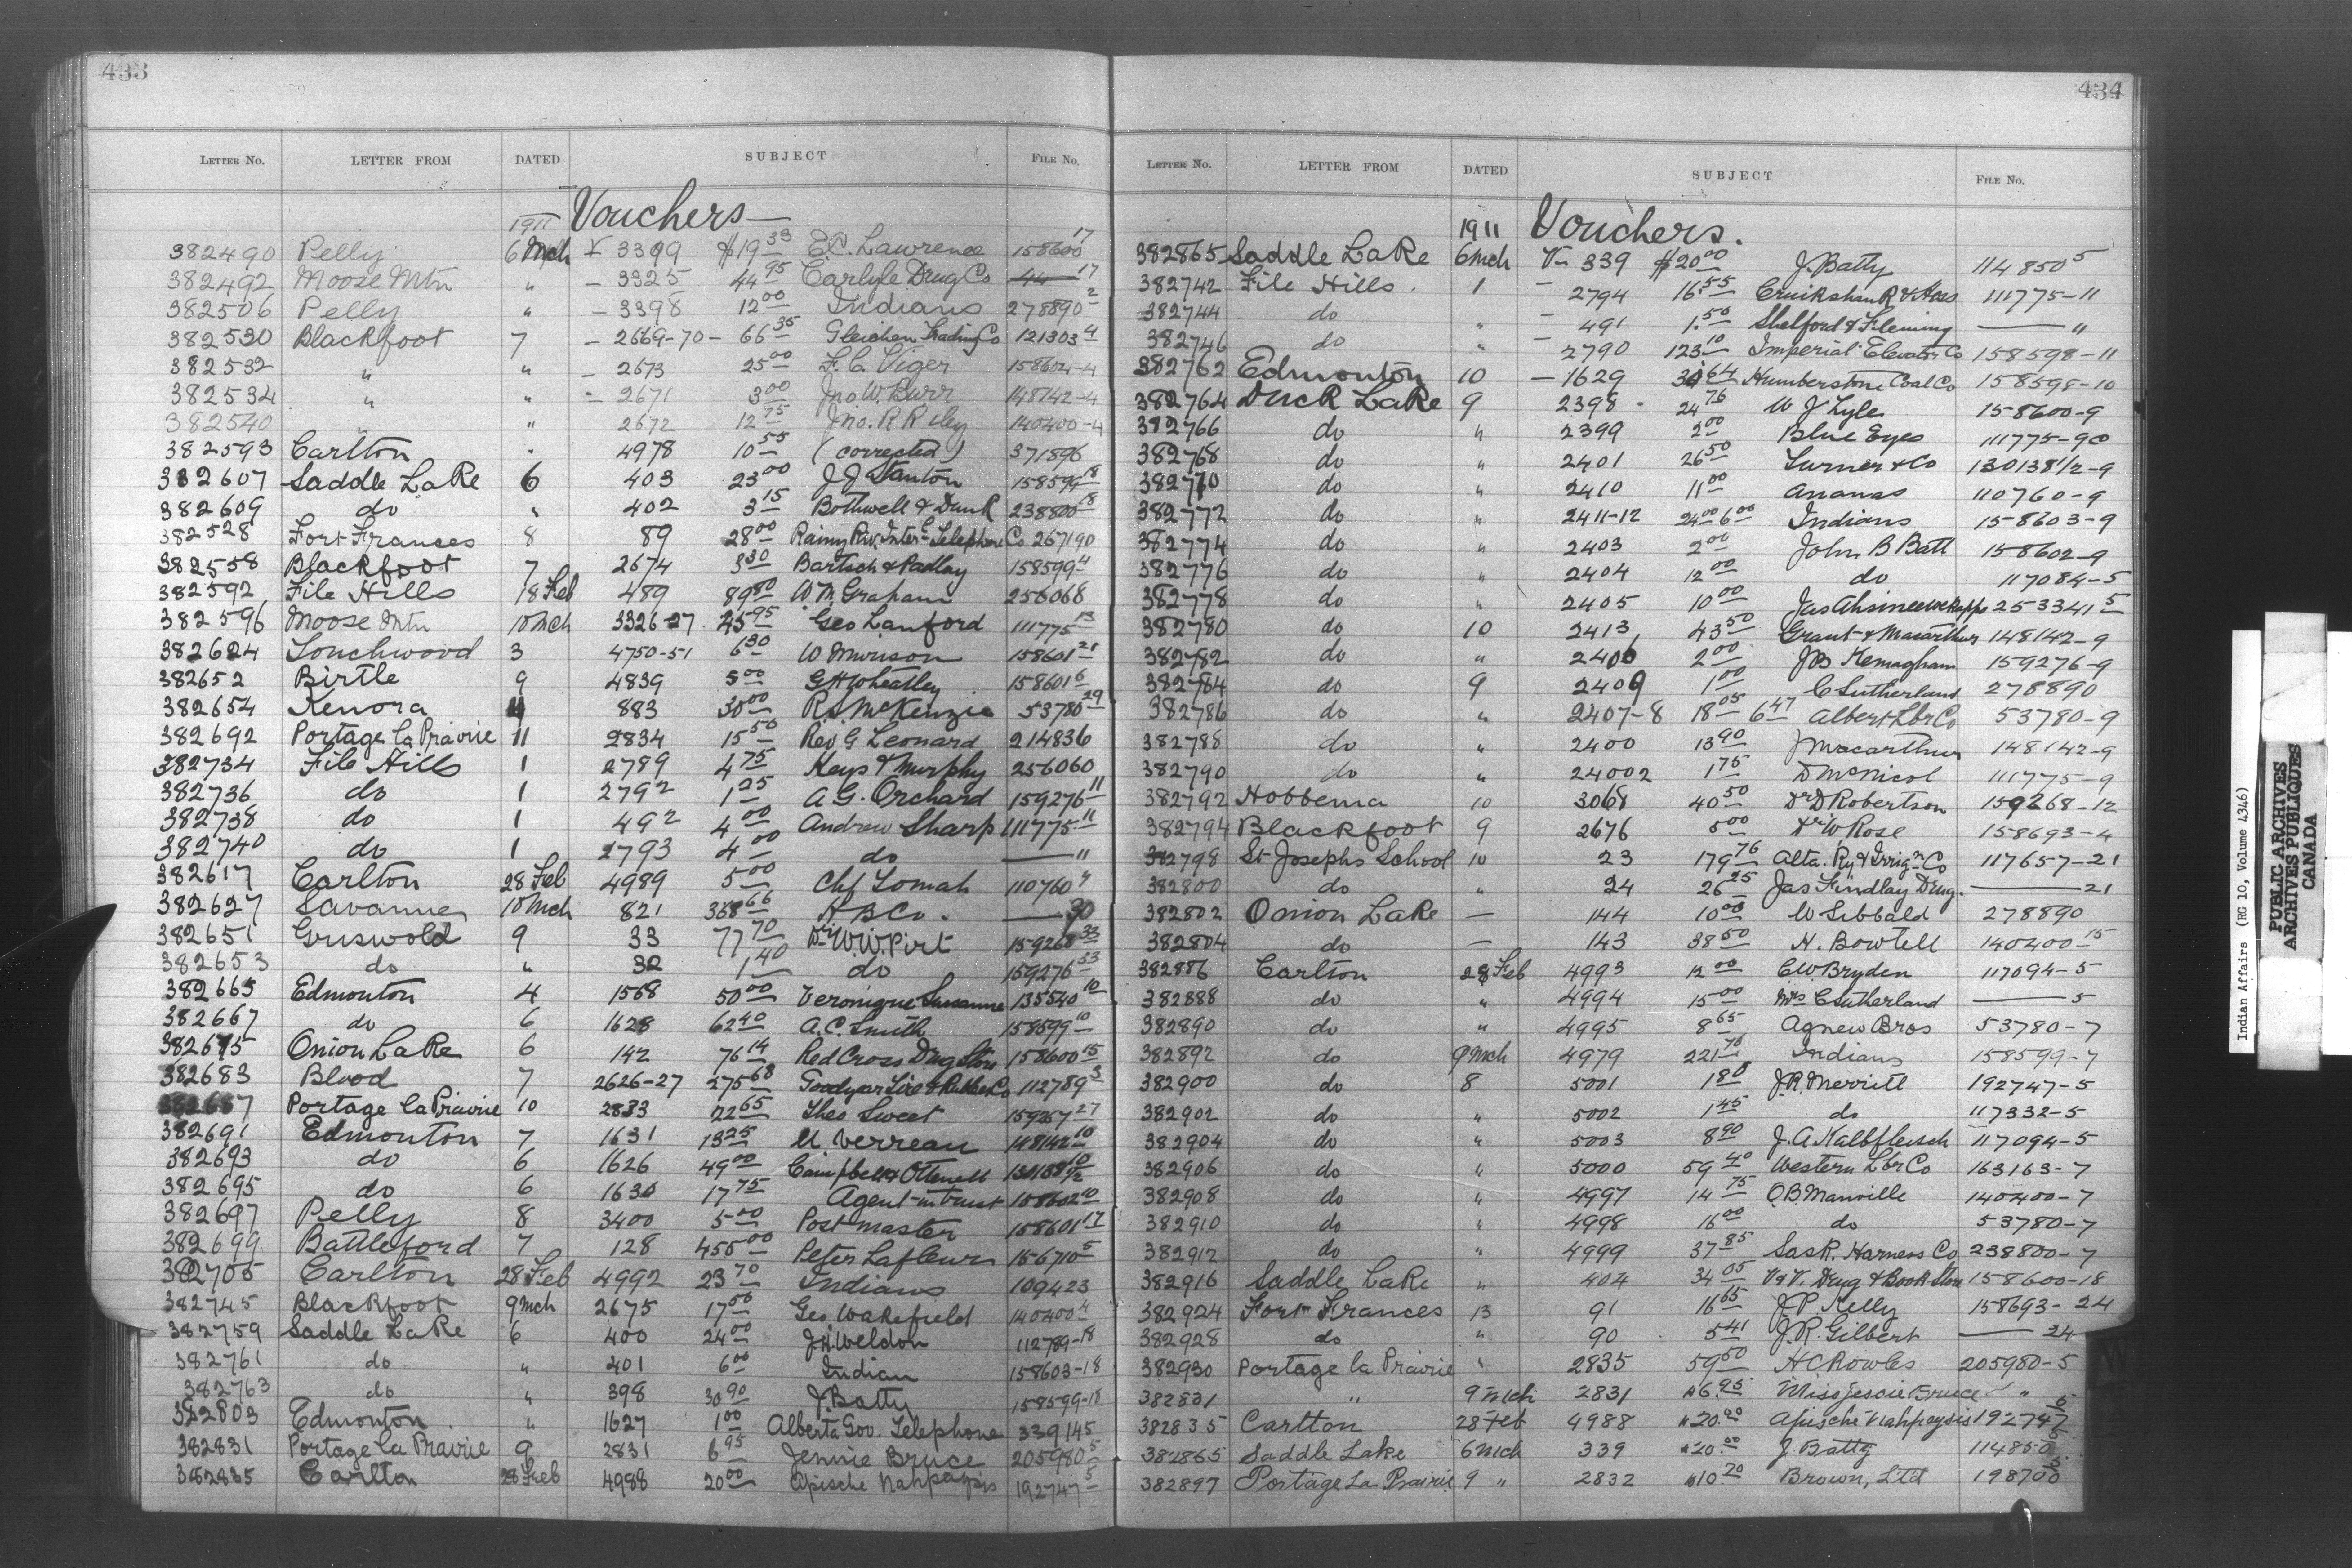 433
LETTER NO. LETTER FROM DATED SUBJECT FILE NO.
1911 Vouchers
382490 Pelly 6 Mch V 3399 $19 33 E.C. Lawrence 158600 17
382492 Moose Mtn " – 3325 44 95 Carlyle Drug Co 44 17
382506 Pelly " – 3398 12 00 Indians 278890 2
382530 Blackfoot 7 – 2669-70 – 66 35 Gleichen Trading Co 121303 4
382532 " " – 2673 25 00 F.C. Viger 158604-4
382534 " " – 2671 3 00 Jno W. Burr 148142-4
382540 " " 2672 12 75 Jno. R Riley 140400-4
382593 Carlton " 4978 10 55 (corrected) 371896
382607 Saddle Lake 6 403 23 00 J J Stanton 158599 18
382609 do " 402 3 15 Bothwell & Dunk 238800 18
382528 Fort Frances 8 89 28 00 Rainy Riv. Inter Telephone Co 267190
382558 Blackfoot 7 2674 3 30 Bartsch & Padley 158599 4
382592 File Hills 18 Feb 489 89 80 W M Graham 256068
382596 Moose Mtn 10 Mch 3326-27 25 95 Geo Lanford 111775 13
382624 Touchwood 3 4750-51 6 30 W Munson 158601 21
382652 Birtle 9 4839 5 00 G H Wheatley 158601 6
382654 Kenora 883 30 00 R.S. McKenzie 53780 29
382692 Portage la Prairie 11 2834 15 50 Rev G Leonard 214836
382734 File Hills 1 2789 4 75 Keys & Murphy 256060
382736 do 1 2792 1 25 A.G. Orchard 159276 11
382738 do 1 492 4 00 Andrew Sharp 111775 11
382740 do 1 2793 4 00 do — "
382617 Carlton 28 Feb 4989 5 00 Chf Tomah 110760 "
382627 Savanne 10 Mch 821 368 66 H B Co. — 30
382651 Griswold 9 33 77 70 Dr W.W. Pirt 159268 33
382653 do " 32 1 40 do 159276 33
382665 Edmonton 4 1568 50 00 Veronique Susanne 135540 10
382667 do 6 1628 62 40 A.C. Smith 158599 10
382675 Onion Lake 6 142 76 14 Red Cross Drug Store 158600 15
382683 Blood 7 2626-27 275 68 Goodyear Tire & Rubber Co 112789 3
382687 Portage la Prairie 10 2833 22 65 Theo Sweet 159267 27
382691 Edmonton 7 1631 13 25 U Verreau 148142 10
382693 do 6 1626 49 00 Campbell & Ottewell 130138 1/2 10
382695 do 6 1630 17 75 Agent in trust 158602 10
382697 Pelly 8 3400 5 00 Post master 158601 17
382699 Battleford 7 128 455 00 Peter Lafleur 156710 5
382705 Carlton 28 Feb 4992 23 70 Indians 109423
382745 Blackfoot 9 Mch 2675 17 50 Geo Wakefield 140400 4
382759 Saddle Lake 6 400 24 00 J.H. Weldon 112789-18
382761 do " 401 6 00 Indian 158603-18
382763 do " 398 30 90 J. Batty 158599-18
382803 Edmonton " 1627 1 00 Alberta Gov. Telephone 339145
382831 Portage La Prairie 9 2831 6 95 Jennie Bruce 205980 5
382835 Carlton 28 Feb 4988 20 00 Apische Nahpaysis 192747 5
434
LETTER NO. LETTER FROM DATED SUBJECT FILE NO.
1911 Vouchers.
382865 Saddle Lake 6 Mch V – 339 $20 00 J. Batty 114850 5
382742 File Hills 1 – 2794 16 55 Cruikshank & Hess 111775-11
382744 do " – 491 1 50 Shelford & Fleming — "
382746 do " – 2790 123 10 Imperial Elevator Co 158598-11
382762 Edmonton 10 – 1629 64 Humberstone Coal Co 158598-10
382764 Duck Lake 9 2398 24 76 W J Lyle 158600-9
382766 do " 2399 2 00 Blue Eyes 111775-9
382768 do " 2401 26 50 Turner & Co 130138 1/2-9
382770 do " 2410 11 00 Ananas 110760-9
382772 do " 2411-12 24 00 6 00 Indians 158603-9
382774 do " 2403 2 00 John B Batt 158602-9
382776 do " 2404 12 00 do 117084-5
382778 do " 2405 10 00 Jas 253341 5
382780 do 10 2413 43 50 Grant & Macarthur 148142-9
382782 do " 2406 2 00 J B Kernaghan 159276-9
382784 do 9 2409 1 00 C Sutherland 278890
382786 do " 2407-8 18 05 6 47 Albert Lbr Co 53780-9
382788 do " 2400 13 90 J Macarthur 148142-9
382790 do " 24002 1 75 D McNicol 111775-9
382792 Hobbema 10 3068 40 50 Dr D Robertson 159268-12
382794 Blackfoot 9 2676 5 00 Dr W Rose 158693-4
382798 St Josephs School 10 23 179 76 Alta. Ry & Irrign Co 117657-21
382800 do " 24 26 25 Jas Findlay Drug. — 21
382802 Onion Lake — 144 10 00 W Sibbald 278890
382804 do — 143 38 50 H. Bowtell 140400-15
382886 Carlton 28 Feb 4993 12 00 C.W. Bryden 117094-5
382888 do " 4994 15 00 Mrs C Sutherland — 5
382890 do " 4995 8 65 Agnew Bros 53780-7
382892 do 9 Mch 4979 221 76 Indians 158599-7
382900 do 8 5001 1 80 J.R. Merrill 192747-5
382902 do " 5002 1 45 do 117332-5
382904 do " 5003 8 90 J.A Kalbfleisch 117094-5
382906 do " 5000 59 40 Western Lbr Co 163163-7
382908 do " 4997 14 75 O.B. Manville 140400-7
382910 do " 4998 16 00 do 53780-7
382912 do " 4999 37 85 Sask. Harness Co 238800-7
382916 Saddle Lake " 404 34 05 V & V. Drug & Book Store 158600-18
382924 Fort Frances 13 91 16 65 J.P. Kelly 158693-24
382928 do " 90 5 41 J.R. Gilbert — 24
382930 Portage la Prairie " 2835 59 50 H C Rowles 205980-5
382831 " 9 Mch 2831 $6.95 Miss Jessie Bruce " 5
382835 Carlton 28 Feb 4988 $20.00 Apische Nahpeysis 192747 5
382865 Saddle Lake 6 Mch 339 $20.00 J. Batty 114850 5
382897 Portage La Prairie 9 " 2832 $10 70 Brown, Ltd 198700
Indian Affairs (RG 10, Volume 4346)
PUBLIC ARCHIVES
ARCHIVES PUBLIQUES
CANADA